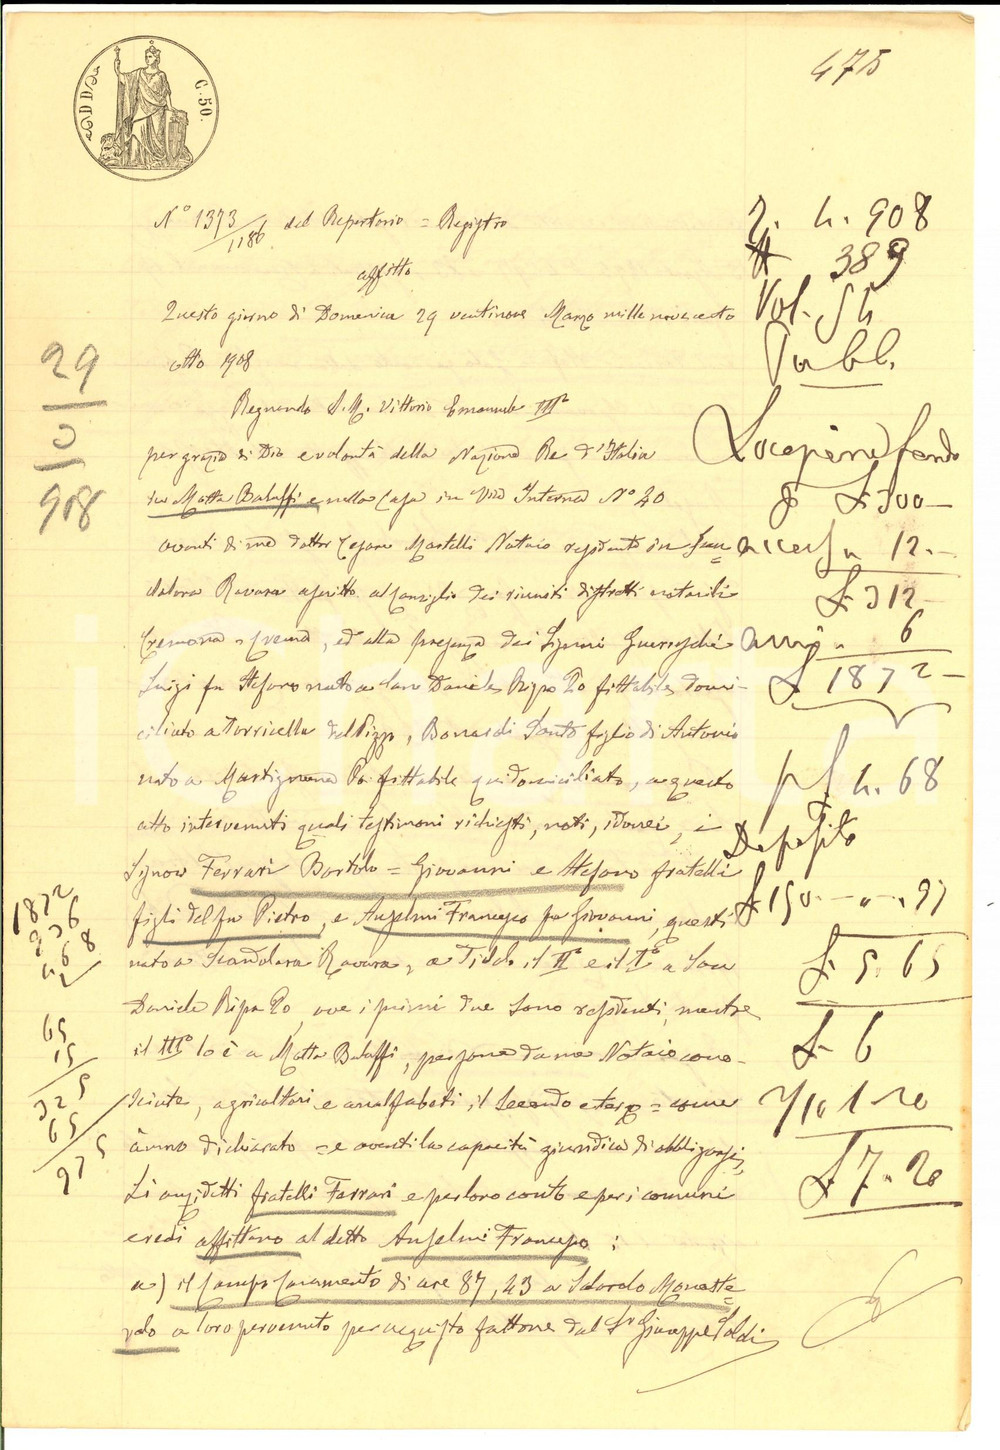 475
C. 50.
N° 1373/1186 del Repertorio = Registro
affitto
Questo giorno di Domenica 29 ventinove Marzo mille novecento
otto 1908
Regnando S. M. Vittorio Emanuele III°
per grazia di Dio e volontà della Nazione Re d'Italia
in Motta Baluffi e nella Casa in Via Interna N° 20
avanti di me dottor Cesare Martelli Notaio residente in Scan
dolara Ravara ascritto al Consiglio dei riuniti distretti notarili
Cremona e Crema, ed alla presenza dei Signori Guerreschi
Luigi fu Stefano nato a San Daniele Ripa Po fittabile domi-
ciliato a Torricella del Pizzo, Bonardi Santo figlio di Antonio
nato a Martignana Po fittabile qui domiciliato, a questo
atto intervenuti quali testimoni richiesti, noti, idonei, i
Signori Ferrari Bortolo = Giovanni e Stefano fratelli
figli del fu Pietro, e Anselmi Francesco fu Giovanni, questi
nato a Scandolara Ravara, a Tidolo il II° e il I° a San
Daniele Ripa Po, ove i primi due sono residenti, mentre
il III° lo è a Motta Baluffi, persone da me Notaio cono-
sciute, agricoltori e analfabeti il secondo e terzo = come
ànno dichiarato = e aventi la capacità giuridica di obbligarsi,
Li anzidetti fratelli Ferrari e per loro conto e per i comuni
eredi affittano al detto Anselmi Francesco :
a) il Campo Caramento di are 87,43 a Sdordo Moneste
rolo a loro pervenuto per acquisto fattone dal Sr Giuseppe Soldi
29
10
908
2. 4. 908
N 389
Vol. 54
Pubbl.
Locazione fondo
£ 300 -
accesso 12. -
£ 312 -
anni 6
£ 1872 -
4. 68
Deposito
£ 190 97
£ 5. 65
£ 6
1/10 1 20
£ 7. 20
1872
936
468
65
15
325
65
975